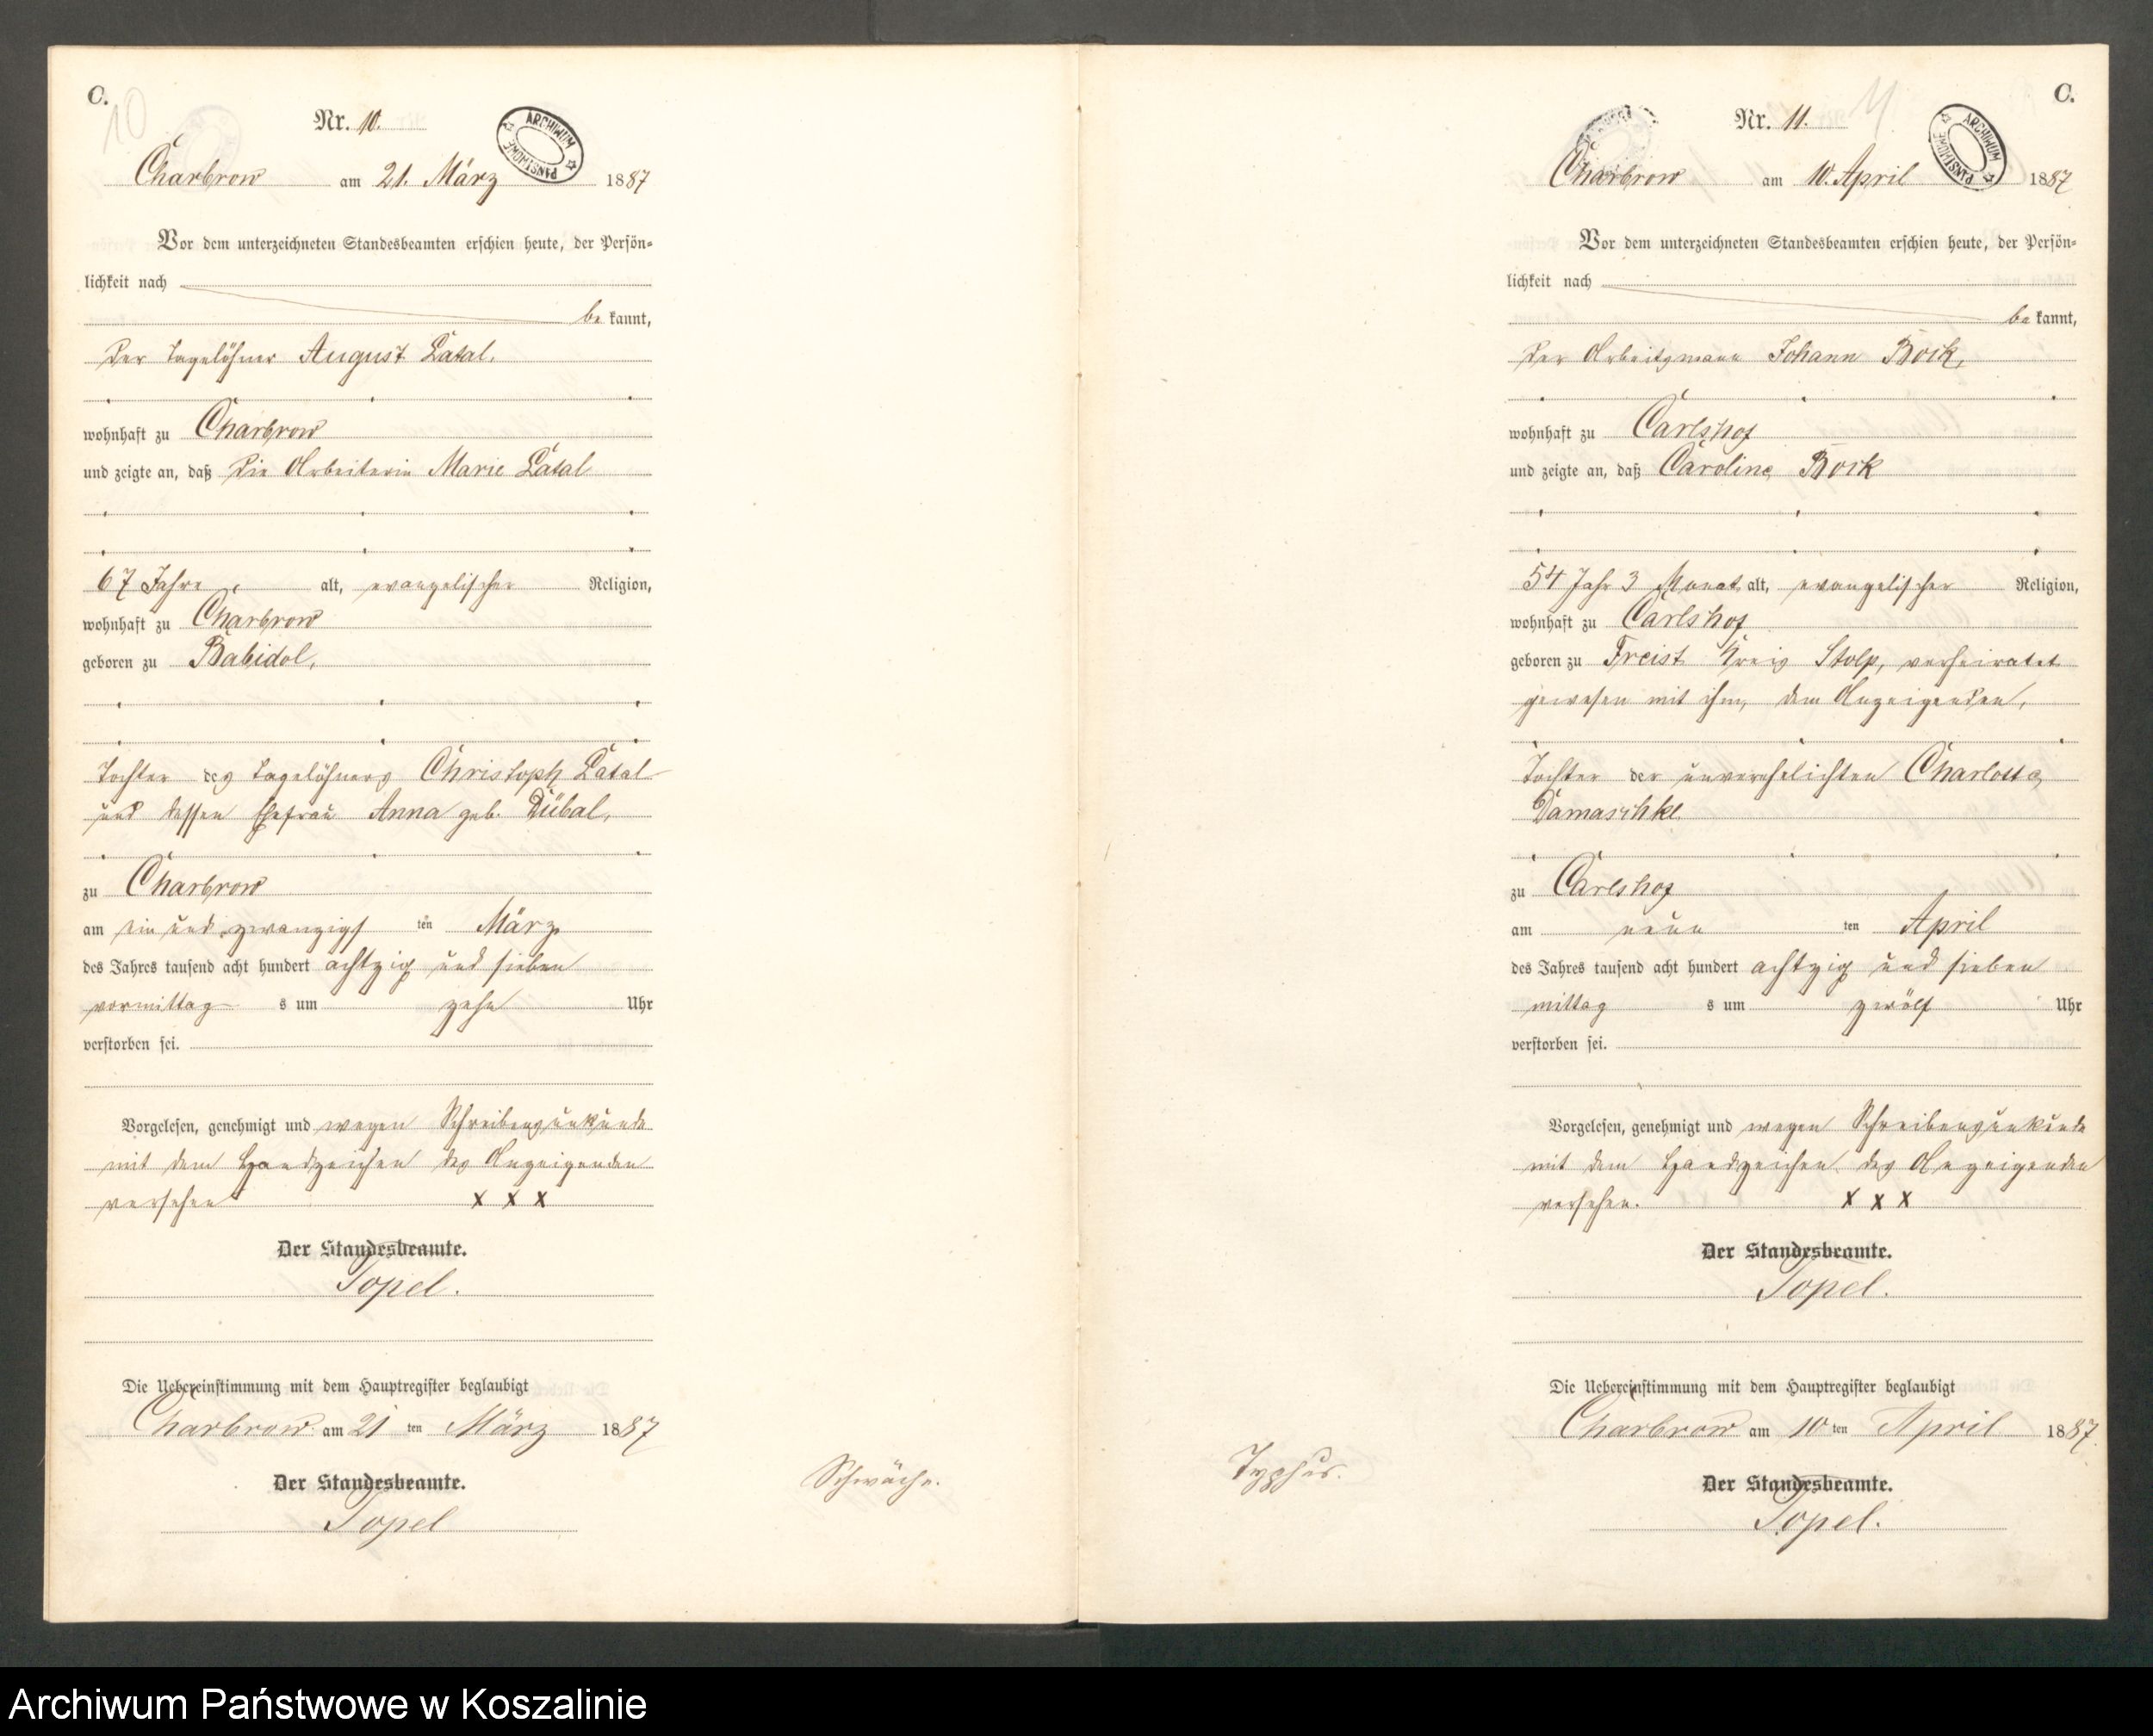 C.
10
Nr. 10.
ARCHIWUM PAŃSTWOWE
Charbrow am 21. März 1887
Vor dem unterzeichneten Standesbeamten erschien heute, der Persön=
lichkeit nach
be kannt,
der Tagelöhner August Latal.
wohnhaft zu Charbrow
und zeigte an, daß die Arbeiterin Marie Latal
67 Jahre alt, evangelischer Religion,
wohnhaft zu Charbrow
geboren zu Babidol,
Tochter des Tagelöhners Christoph Latal
und dessen Ehefrau Anna geb. Dübal,
zu Charbrow
am ein und zwanzigs ten März
des Jahres tausend acht hundert achtzig und sieben
vormittag s um zehn Uhr
verstorben sei.
Vorgelesen, genehmigt und wegen Schreibensunkunde
mit dem Handzeichen des Anzeigenden
versehen x x x
Der Standesbeamte.
Topel.
Die Uebereinstimmung mit dem Hauptregister beglaubigt
Charbrow am 21 ten März 1887
Der Standesbeamte.
Topel
Schwäche.
C.
11
Nr. 11.
ARCHIWUM PAŃSTWOWE
Charbrow am 10. April 1887
Vor dem unterzeichneten Standesbeamten erschien heute, der Persön=
lichkeit nach
be kannt,
der Arbeitsmann Johann Bock,
wohnhaft zu Carlshof
und zeigte an, daß Caroline Bock
54 Jahr 3 Monat alt, evangelischer Religion,
wohnhaft zu Carlshof
geboren zu Freist Kreis Stolp, verheiratet
gewesen mit ihm, dem Anzeigenden,
Tochter der unverehelichten Charlotte
Damaschke
zu Carlshof
am neun ten April
des Jahres tausend acht hundert achtzig und sieben
mittag s um zwölf Uhr
verstorben sei.
Vorgelesen, genehmigt und wegen Schreibensunkunde
mit dem Handzeichen des Anzeigenden
versehen. x x x
Der Standesbeamte.
Topel.
Die Uebereinstimmung mit dem Hauptregister beglaubigt
Charbrow am 10 ten April 1887.
Der Standesbeamte.
Topel.
Typhus.
Archiwum Państwowe w Koszalinie